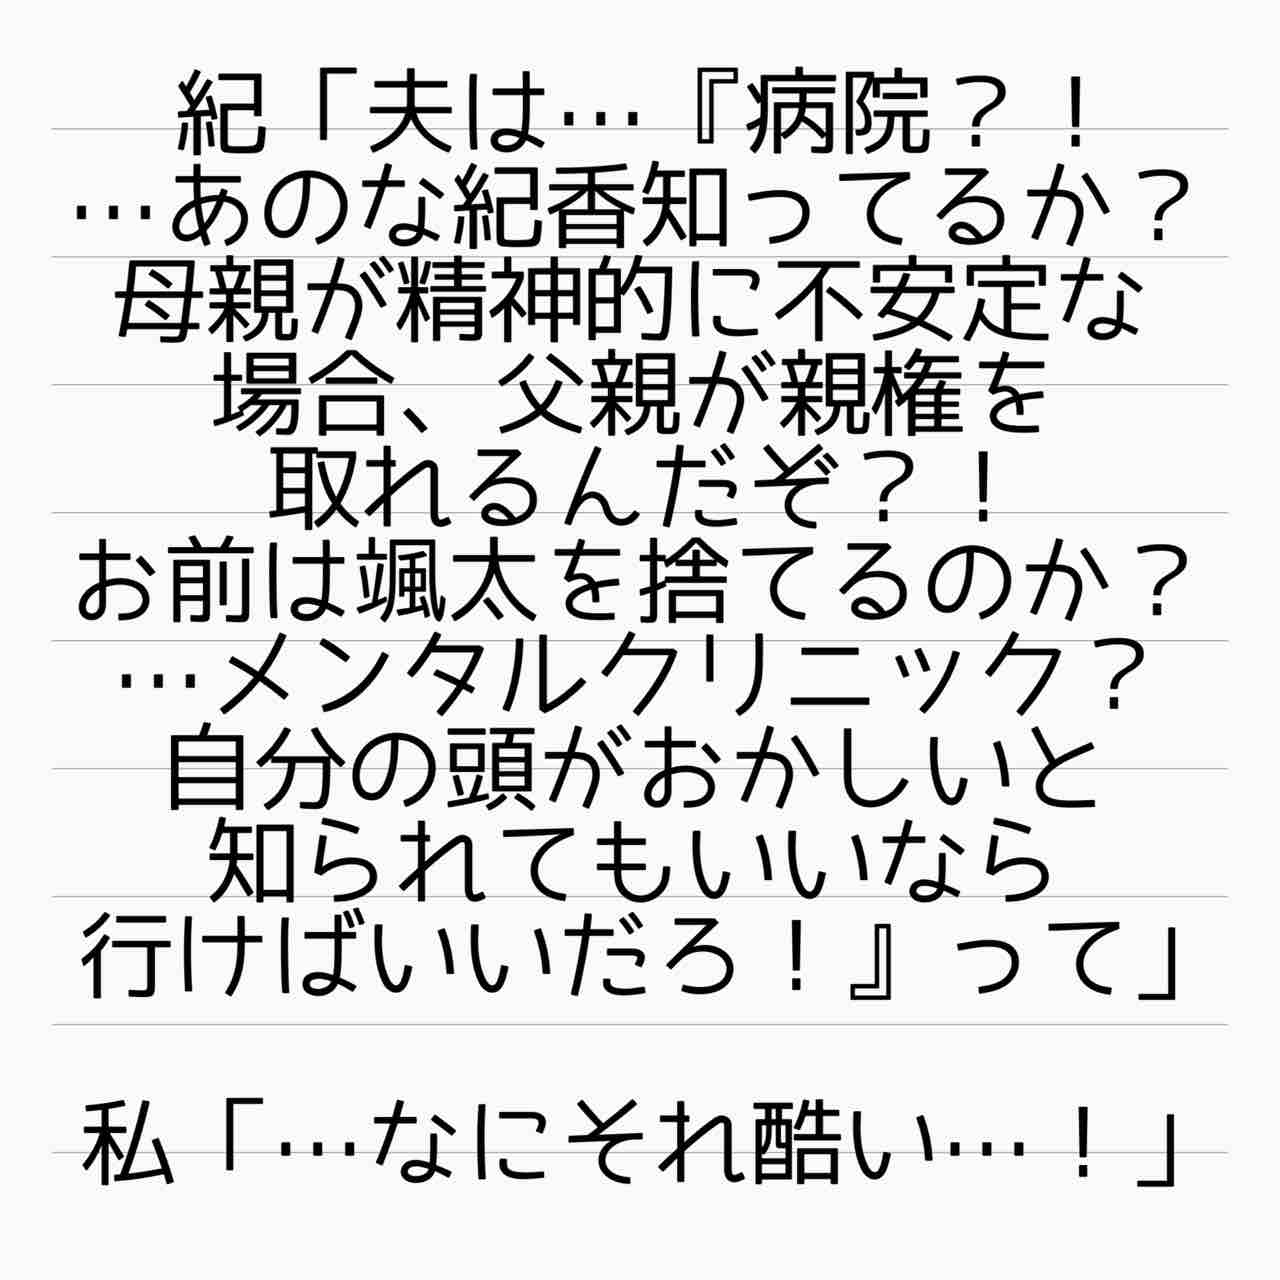 紀「夫は…『病院？！
…あのな紀香知ってるか？
母親が精神的に不安定な
場合、父親が親権を
取れるんだぞ？！
お前は颯太を捨てるのか？
…メンタルクリニック？
自分の頭がおかしいと
知られてもいいなら
行けばいいだろ！』って」
私「…なにそれ酷い…！」